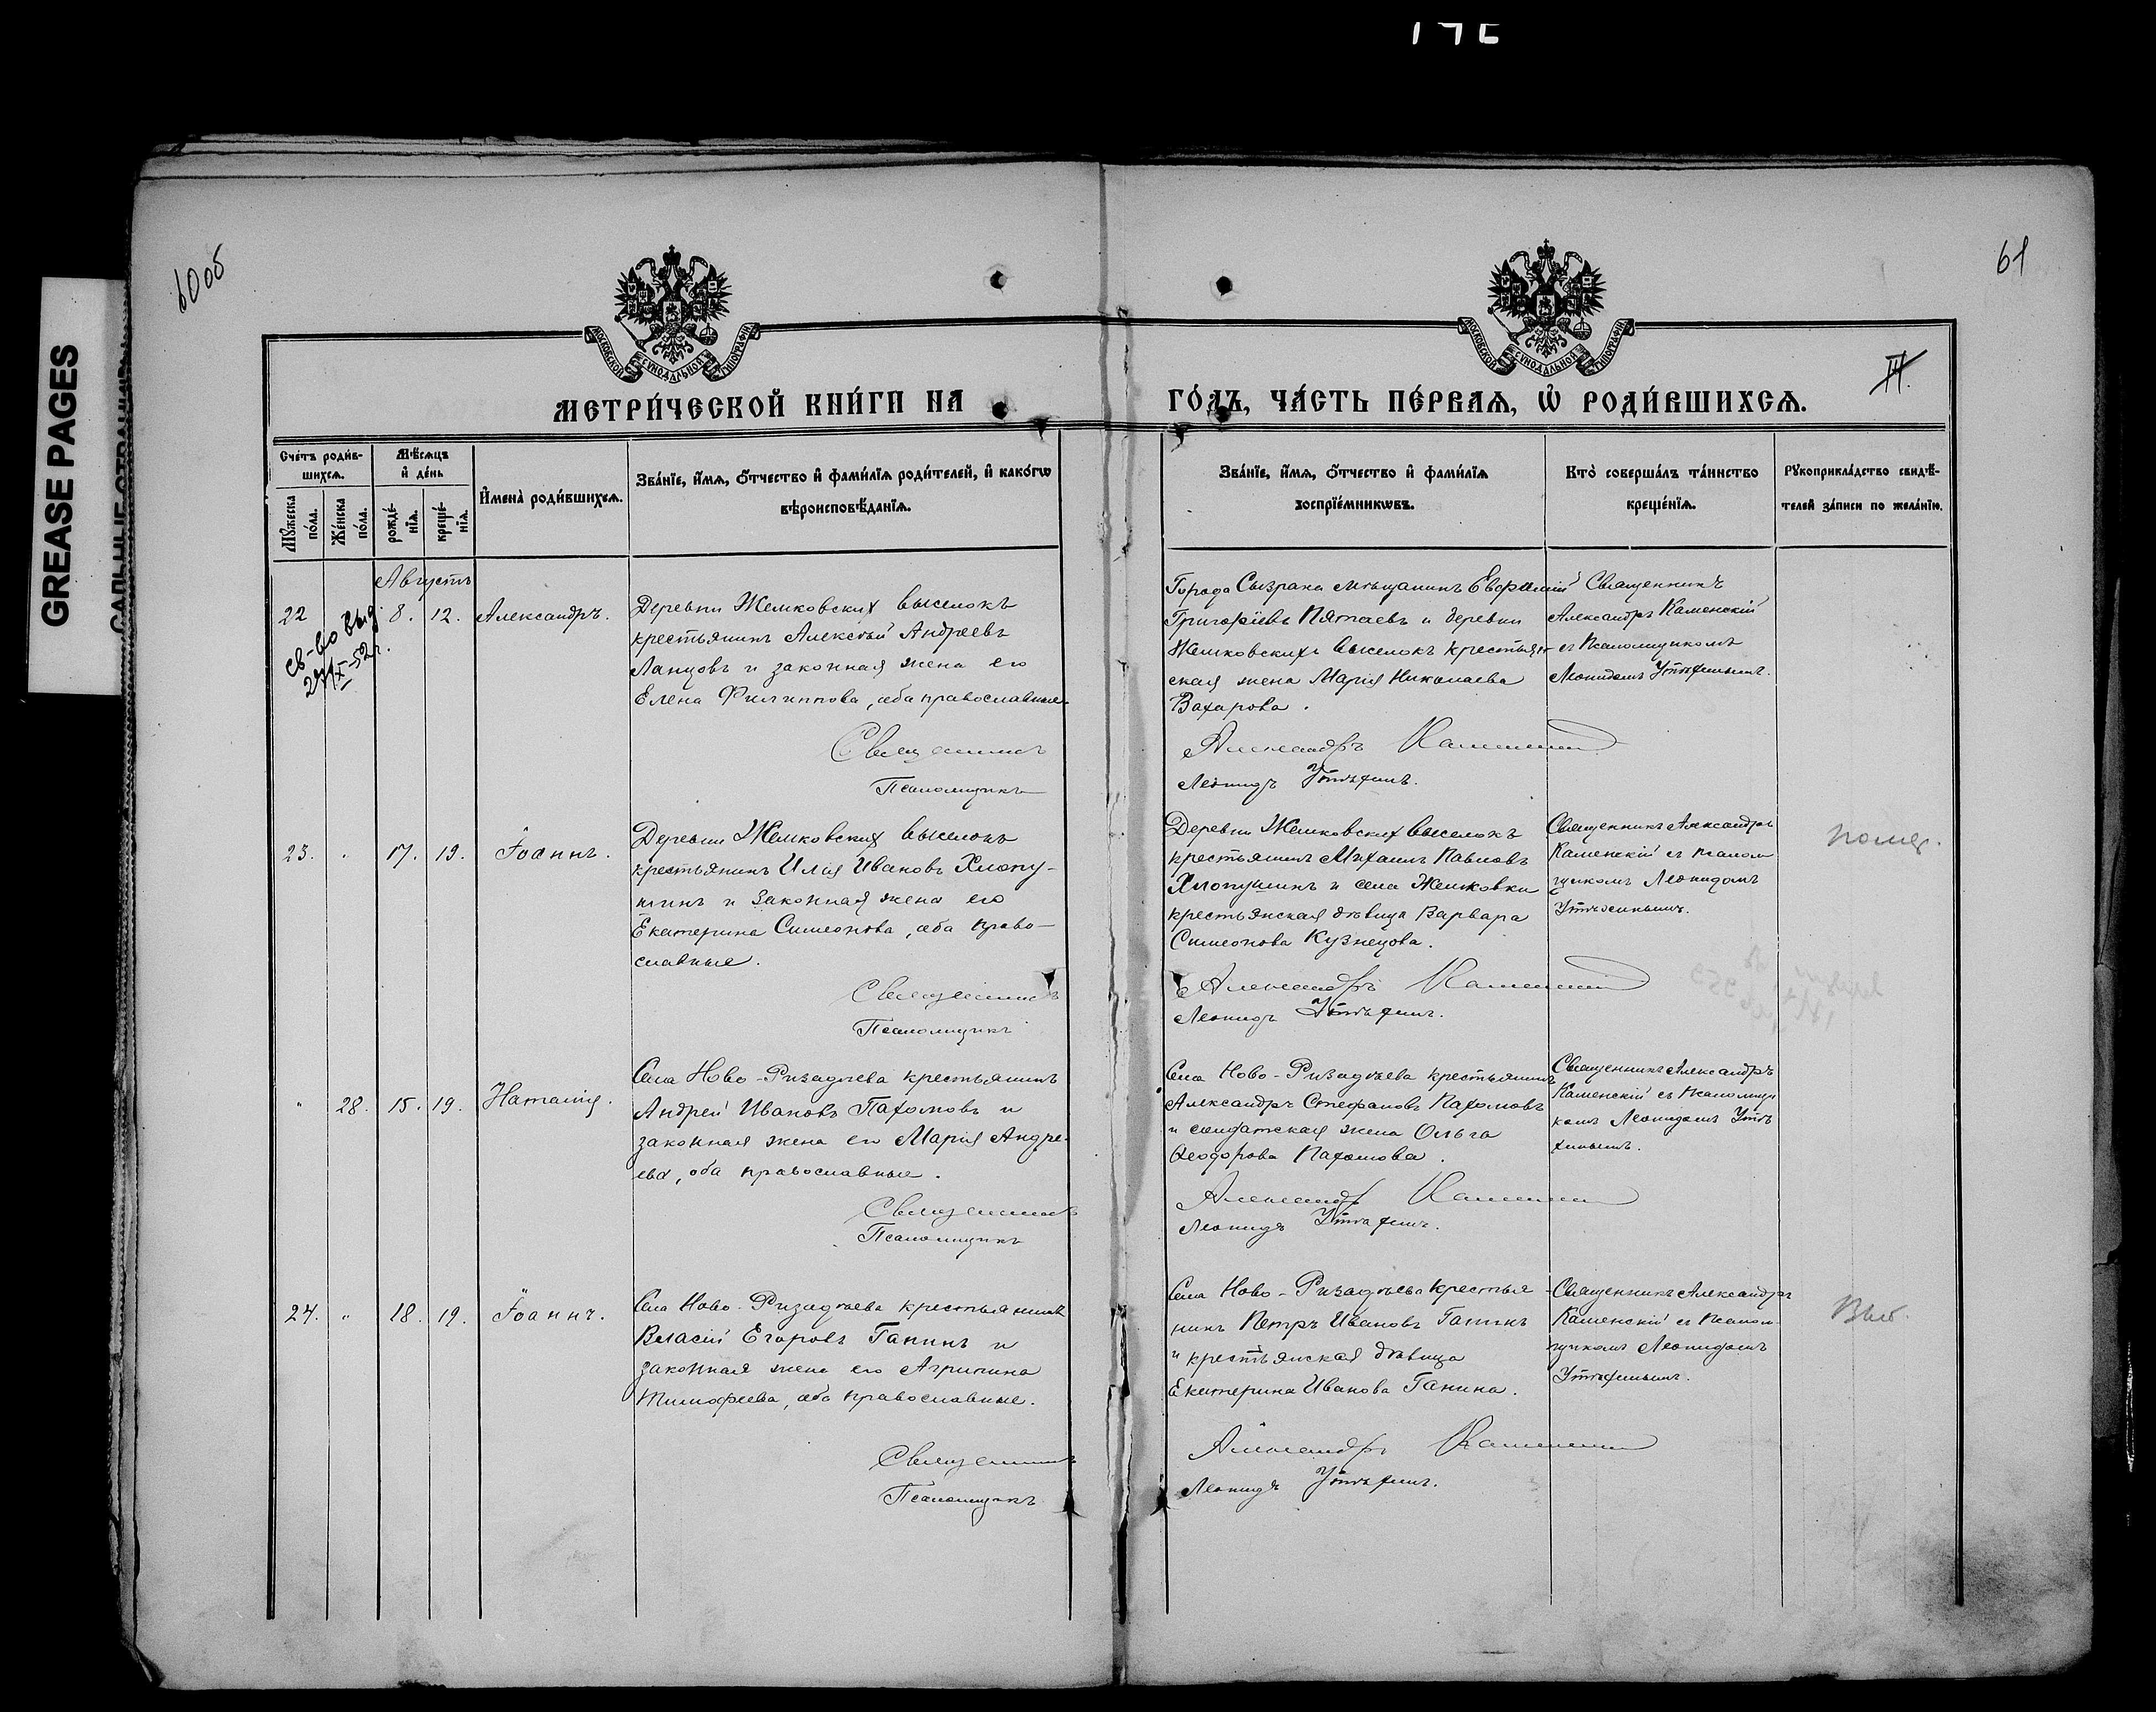 60об
61
GREASE PAGES
МОСКОВСКОЙ СУНОДАЛЬНОЙ ТИПОГРАФІИ
МОСКОВСКОЙ СУНОДАЛЬНОЙ ТИПОГРАФІИ
МЕТРИ́ЧЕСКОЙ КНИ́ГИ НА
ГО́ДЪ, ЧА́СТЬ ПЕ́РВАѦ, Ѽ РОДИ́ВШИХСѦ.
Сче́тъ роди́в-
шихсѧ.
Мѣ́сѧцъ
и҆ де́нь
Мꙋ́жеска
по́ла.
Же́нска
по́ла.
рожде́-
нїѧ.
креще́-
нїѧ.
И҆мена̀ роди́вшихсѧ.
Зва́нїе, и҆́мѧ, ѻ҆́тчество и҆ фами́лїѧ роди́телей, и҆ како́гѡ
вѣроисповѣ́данїѧ.
Зва́нїе, и҆́мѧ, ѻ҆́тчество и҆ фами́лїѧ
воспрїе́мникѡвъ.
Кто̀ соверша́лъ та́инство
креще́нїѧ.
Рꙋкоприкла́дство свидѣ́-
телей за́писи по жела́нїю.
Августъ
22
8. 12. Александръ.
св-во выд.
Деревни Жемковскихъ выселокъ
крестьянинъ Алексѣй Андреевъ
Лапцовъ и законная жена его
Елена Филиппова, оба православные.
Священникъ
Псаломщикъ
Города Сызрани мѣщанинъ Евфимій
Григоріевъ Пятаевъ и деревни
Жемковскихъ выселокъ крестьян-
ская жена Марія Николаева
Захарова.
Александръ Каменскій
Леонидъ
Священникъ
Александръ Каменскій
съ Псаломщикомъ
Леонидомъ
23. " 17. 19. Іоаннъ.
Деревни Жемковскихъ выселокъ
крестьянинъ Илія Ивановъ Хлопу-
шинъ и законная жена его
Екатерина Симеонова, оба право-
славные.
Священникъ
Псаломщикъ
Деревни Жемковскихъ выселокъ
крестьянинъ Михаилъ Павловъ
Хлопушинъ и села Жемковки
крестьянская дѣвица Варвара
Симеонова Кузнецова.
Александръ Каменскій
Леонидъ
Священникъ Александръ
Каменскій съ псалом
щикомъ Леонидомъ
помер.
" 28. 15. 19. Наталія.
Села Ново-Ризадѣева крестьянинъ
Андрей Ивановъ Пахомовъ и
законная жена его Марія Андре-
ева, оба православные.
Священникъ
Псаломщикъ
Села Ново-Ризадѣева крестьянинъ
Александръ Стефановъ Пахомовъ
и солдатская жена Ольга
Ѳеодорова Пахомова.
Александръ Каменскій
Леонидъ
Священникъ Александръ
Каменскій съ псаломщи
комъ Леонидомъ
24. " 18. 19. Іоаннъ.
Села Ново-Ризадѣева крестьянинъ
Власій Егоровъ Ганинъ и
законная жена его Агрипина
Тимофеева, оба православные.
Священникъ
Псаломщикъ
Села Ново-Ризадѣева крестья
нинъ Петръ Ивановъ Ганинъ
и крестьянская дѣвица
Екатерина Иванова Ганина.
Александръ Каменскій
Леонидъ
Священникъ Александръ
Каменскій съ псалом-
щикомъ Леонидомъ
Выб.